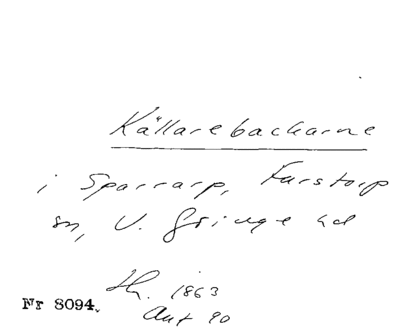 Källarebackarne
i Sparrarp, Farstorp
sn, V. Göinge hd
Hr. 1863
Ant 90
Nr 8094.